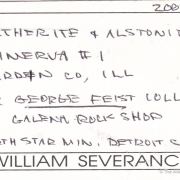 200
THERITE & ALSTONIT
INERVA #1
RDIN CO, ILL
GEORGE FEIST COLL
GALENA ROCK SHOP
TH STAR MIN. DETROIT C
WILLIAM SEVERANC